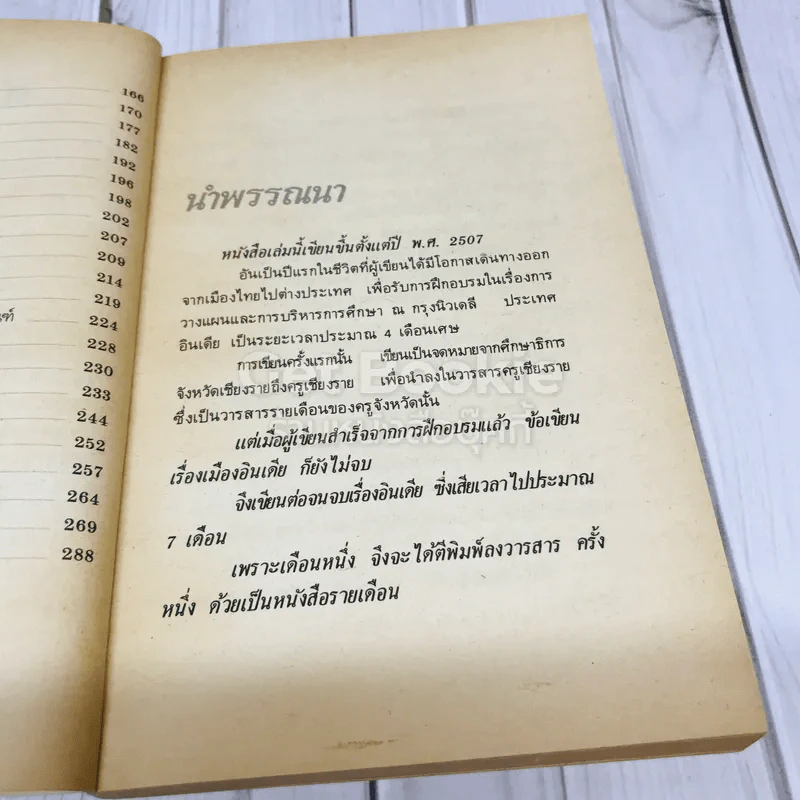 166
170
177
182
192
196
198
202
207
209
214
219
224
228
230
233
244
252
257
264
269
288
นำพรรณนา
หนังสือเล่มนี้เขียนขึ้นตั้งแต่ปี พ.ศ. 2507
อันเป็นปีแรกในชีวิตที่ผู้เขียนได้มีโอกาสเดินทางออก
จากเมืองไทยไปต่างประเทศ เพื่อรับการฝึกอบรมในเรื่องการ
วางแผนและการบริหารการศึกษา ณ กรุงนิวเดลี ประเทศ
อินเดีย เป็นระยะเวลาประมาณ 4 เดือนเศษ
การเขียนครั้งแรกนั้น เขียนเป็นจดหมายจากศึกษาธิการ
จังหวัดเชียงรายถึงครูเชียงราย เพื่อนำลงในวารสารครูเชียงราย
ซึ่งเป็นวารสารรายเดือนของครูจังหวัดนั้น
แต่เมื่อผู้เขียนสำเร็จจากการฝึกอบรมแล้ว ข้อเขียน
เรื่องเมืองอินเดีย ก็ยังไม่จบ
จึงเขียนต่อจนจบเรื่องอินเดีย ซึ่งเสียเวลาไปประมาณ
7 เดือน
เพราะเดือนหนึ่ง จึงจะได้ตีพิมพ์ลงวารสาร ครั้ง
หนึ่ง ด้วยเป็นหนังสือรายเดือน
Get Bookie